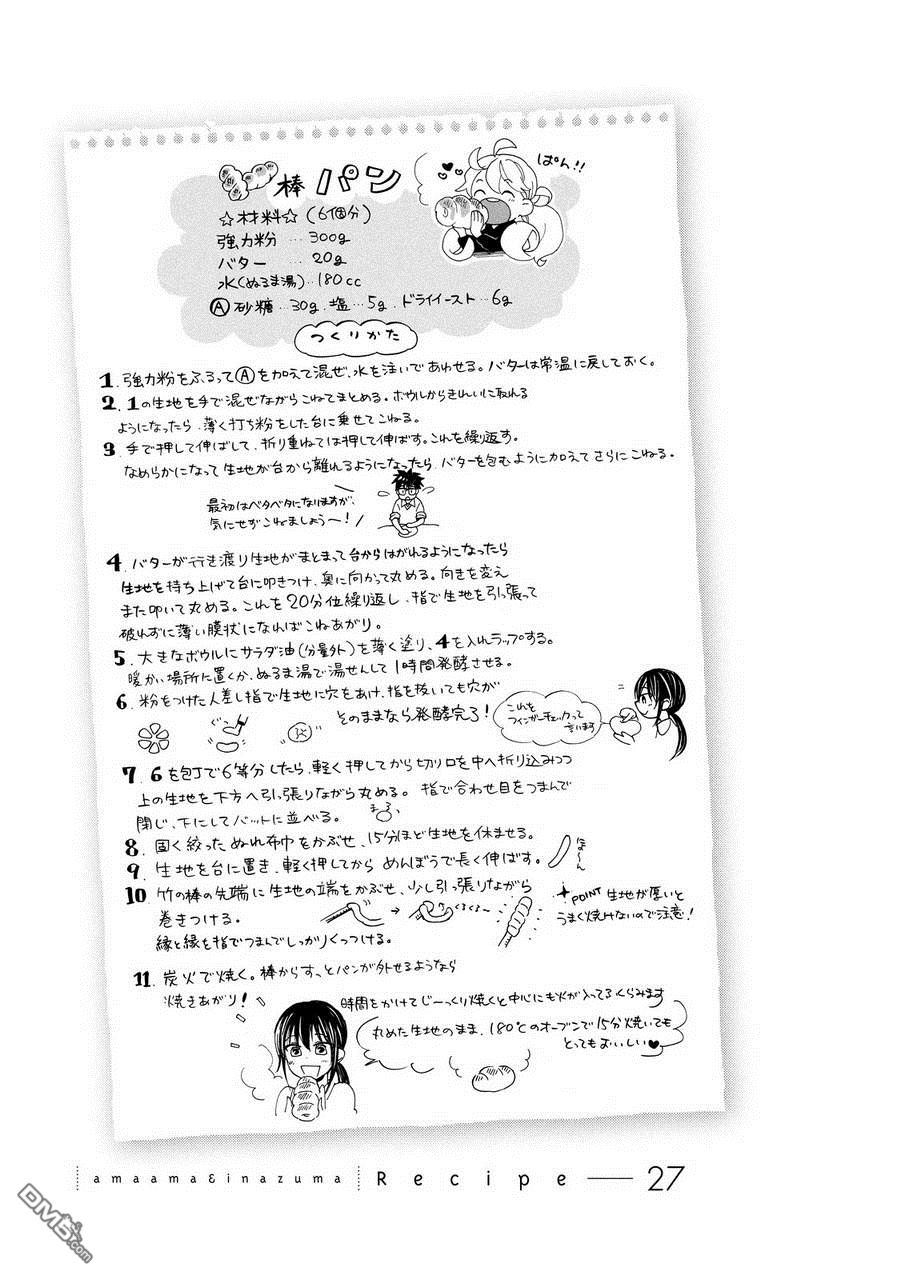 棒パン
ぱん!!
☆材料☆(6個分)
強力粉…300g
バター…20g
水(ぬるま湯)…180cc
Ⓐ砂糖…30g.塩…5g.ドライイースト…6g
つくりかた
1.強力粉をふるってⒶを加えて混ぜ、水を注いであわせる。バターは常温に戻しておく。
2.1の生地を手で混ぜながらこねてまとめる。ボウルからきれいに取れる
ようになったら、薄く打ち粉をした台に乗せてこねる。
3 手で押して伸ばして、折り重ねては押して伸ばす。これを繰り返す。
なめらかになって生地が台から離れるようになったら、バターを包むように加えてさらにこねる。
最初はベタベタになりますが、
気にせずこねましょう〜!
4.バターが行き渡り生地がまとまって台からはがれるようになったら
生地を持ち上げて台に叩きつけ、奥に向かって丸める。向きを変え
また叩いて丸める。これを20分位繰り返し、指で生地を引っ張って
破れずに薄い膜状になればこねあがり。
5.大きなボウルにサラダ油(分量外)を薄く塗り、4を入れラップする。
暖かい場所に置くか、ぬるま湯で湯せんして1時間発酵させる。
6.粉をつけた人差し指で生地に穴をあけ、指を抜いても穴が
そのままなら発酵完了!
これを
フィンガーチェックって
言います
7.6を包丁で6等分したら、軽く押してから切り口を中へ折り込みつつ
上の生地を下方へ引っ張りながら丸める。指で合わせ目をつまんで
閉じ、下にしてバットに並べる。
8.固く絞ったぬれ布巾をかぶせ、15分ほど生地を休ませる。
9.生地を台に置き、軽く押してからめんぼうで長く伸ばす。
10.竹の棒の先端に生地の端をかぶせ、少し引っ張りながら
巻きつける。
縁と縁を指でつまんでしっかりくっつける。
くるくる〜
POINT 生地が厚いと
うまく焼けないので注意!
11.炭火で焼く。棒からすっとパンが外せるようなら
焼きあがり!
時間をかけてじーっくり焼くと中心にも火が入ってふくらみます
丸めた生地のまま、180℃のオーブンで15分焼いても
とってもおいしい♥
amaama&inazuma Recipe — 27
DM5.com